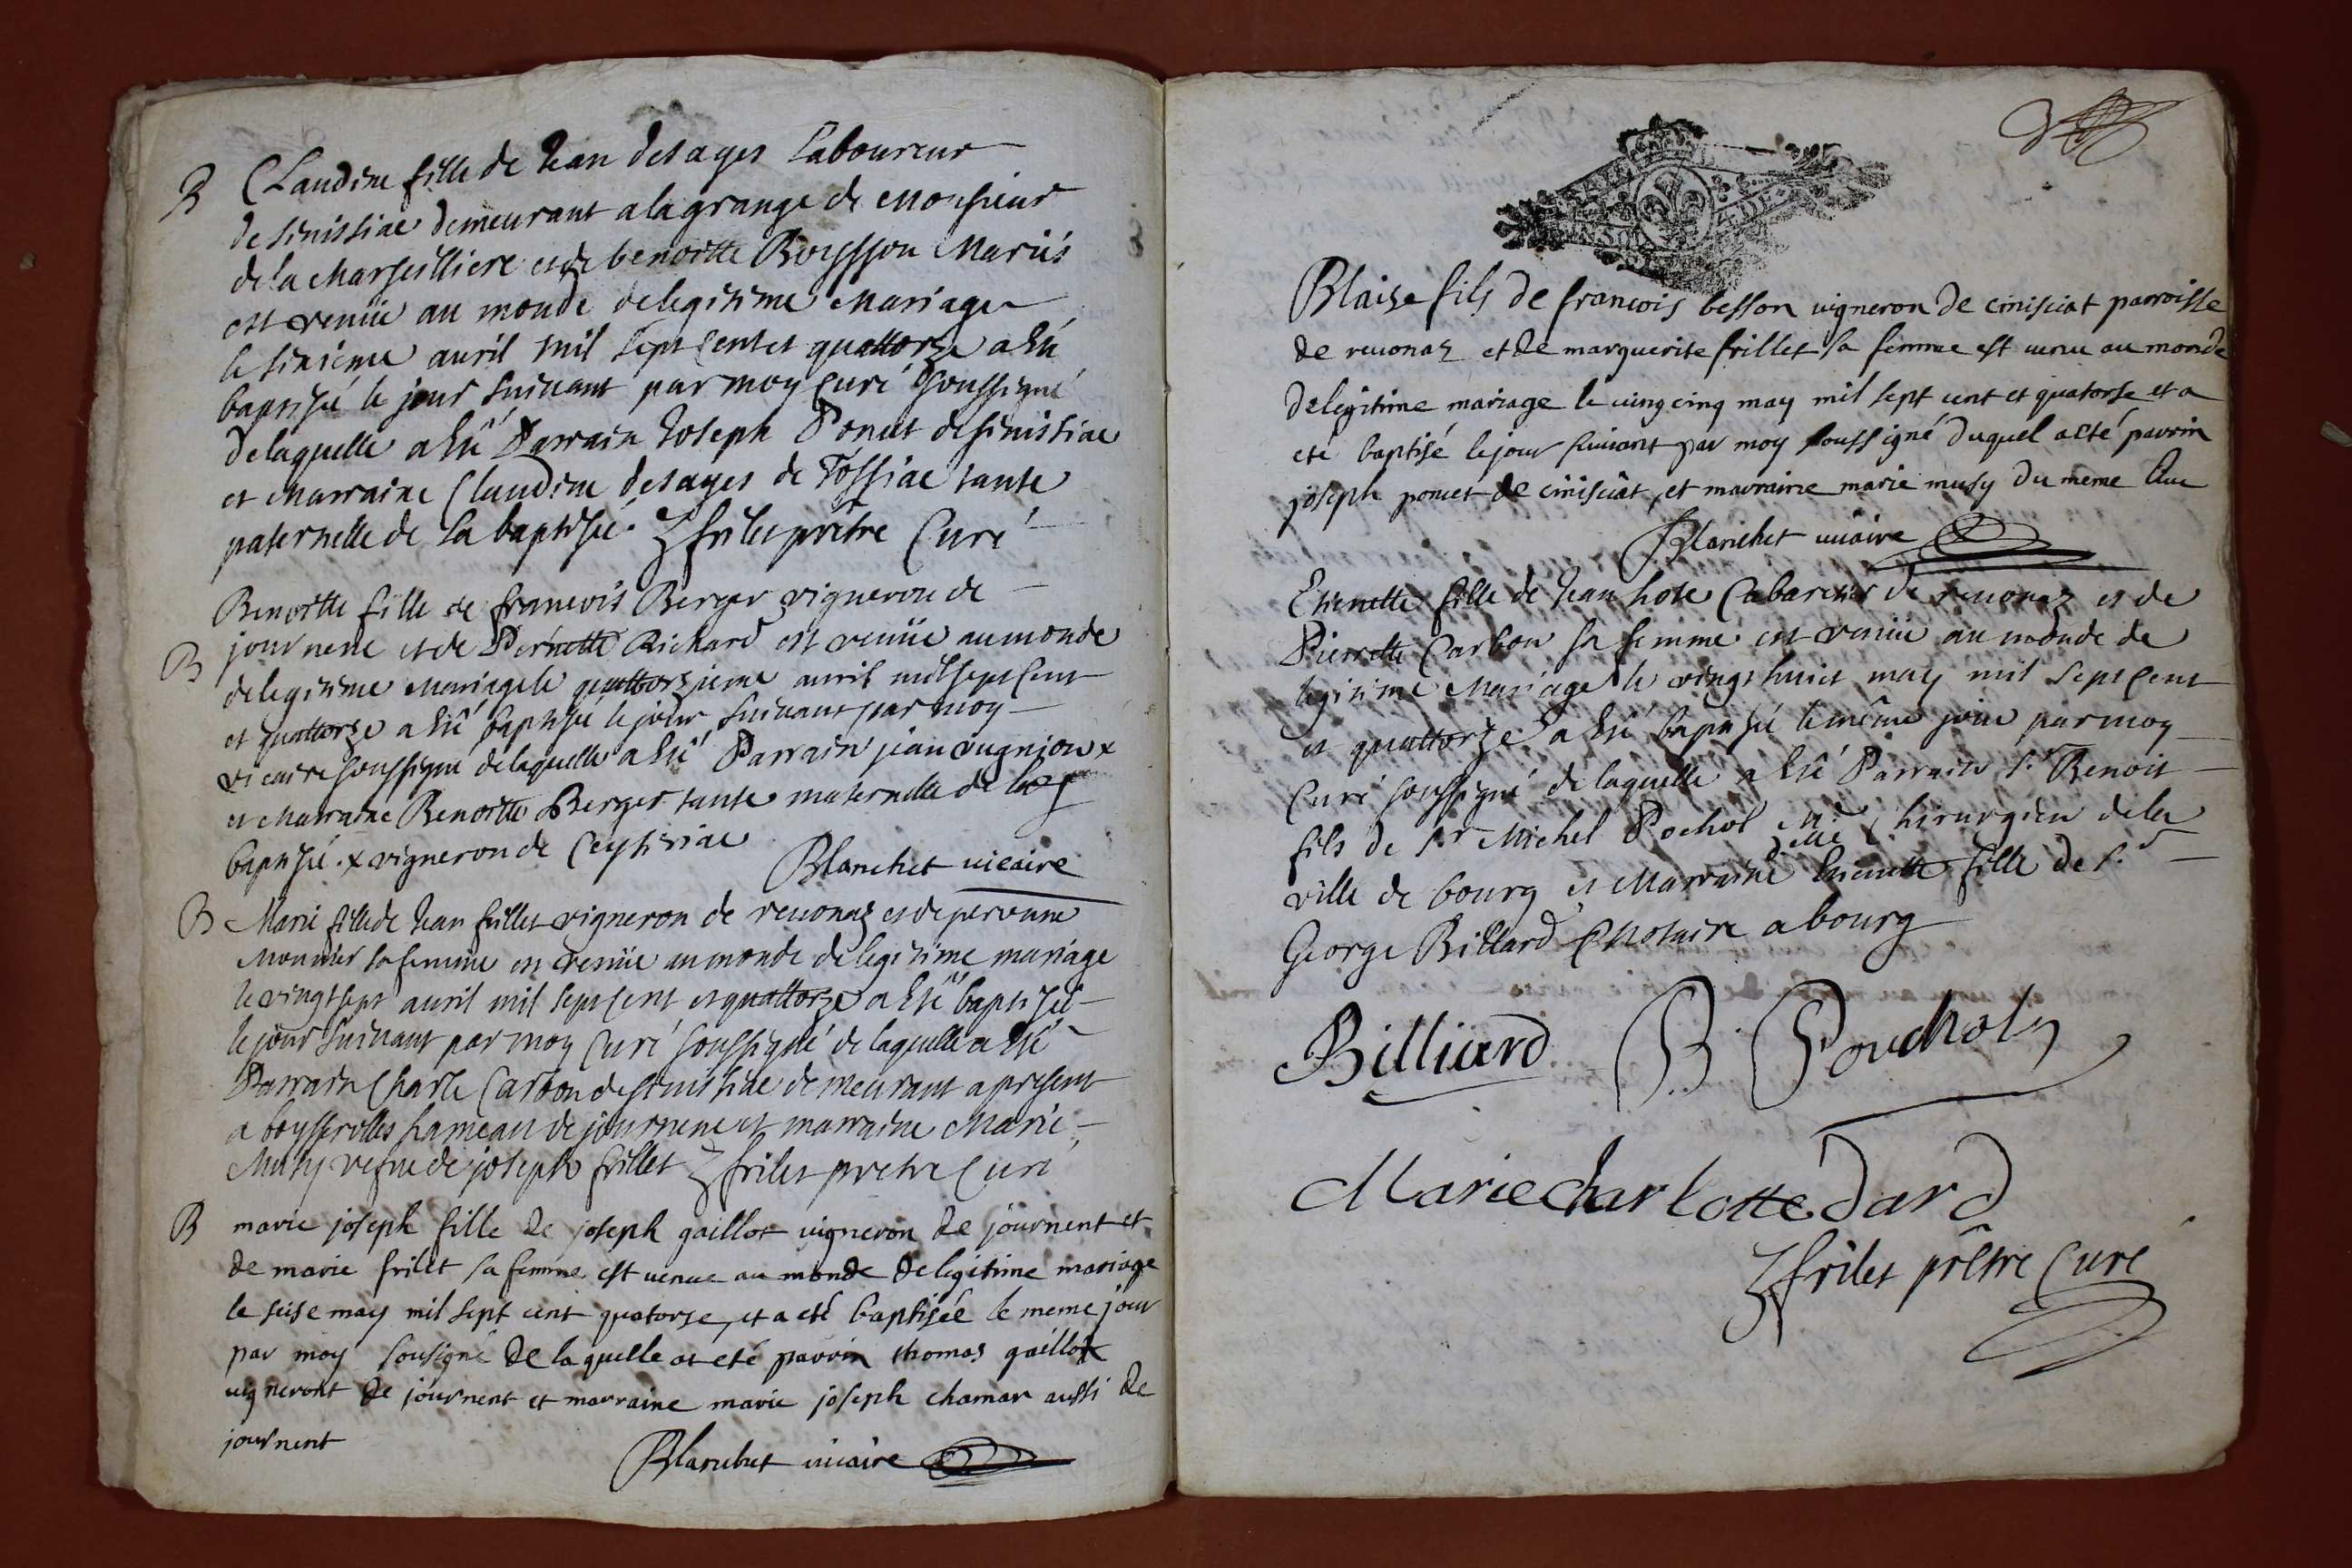 B Claudine fille de Jean desages Laboureur
de sinissiac demeurant a la grange de Monsieur
de la Marseilliere et de benoitte Boysson Mariés
est venüe au monde de legitime Mariage
le sixieme auril mil sept cent et quattorze a êté
baptisée le jour suiuant par moy Curé soussigné
de laquelle a êté Parrain Joseph Poncet de sinissiac
et Marraine Claudine desages de Tossiac tante
paternelle de la baptisée. Jfrilet prêtre Curé
Benoitte fille de francois Berger vigneron de
B journene et de Pernette Richard est venüe au monde
de legitime Mariage le quattorzieme auril mil sept Cent
et quattorze a êté baptisée le jour suiuant par moy
vicaire soussigné de laquelle a êté Parrain jean uugnion x
et Marraine Benoitte Berger tante maternelle de la
baptisée. x vigneron de Ceyseriac
Blanchet uicaire
B Marie fille de Jean frillet vigneron de reuonaz et de peronne
Monnier sa femme est venüe au monde de legitime mariage
le vingt sept auril mil sept cent et quattorze a êté baptisée
le jour suiuant par moy Curé soussigné de laquelle a êté
Parrain Charle Carbon de sinissiac demeurant a present
a boysserolles hameau de journene et marraine Marie
Musy vefue de joseph frillet Jfrilet pretre Curé
B marie joseph fille de joseph gaillot uigneron de journent et
de marie frilet sa femme est uenue au monde de legitime mariage
le seise may mil sept cent quatorse, et a eté baptisée le meme jour
par moy sousigné de laquelle at eté parrin thomas gaillot
uigneront de journent et marraine marie joseph chamar aussi de
journent
Blanchet uicaire
Blaise fils de francois besson uigneron de cinisciat parroisse
de reuonaz et de marguerite frillet sa femme est uenu au monde
de legitime mariage le uing cinq may mil sept cent et quatorse et a
eté baptisé le jour suiuant par moy soussigné duquel a eté parrin
joseph poncet de cinisciat, et marraine marie musy du meme lieu
Blanchet uicaire
Etienette fille de Jean hote Cabaretier de reuonaz et de
Pierrette Carbon sa femme est venüe au monde de
legitime Mariage le vingt huit may mil sept Cent
et quattorze a êté baptisée le même jour par moy
Curé soussigné de laquelle a êté Parrain sr Benoit
fils de sr Michel Pochol Me Chirurgien de la
ville de bourg et Marraine delle Etienette fille de sr
George Billard Notaire a bourg
Billiard B Pouchol
Marie charlotte Dard
Jfrilet prêtre Curé